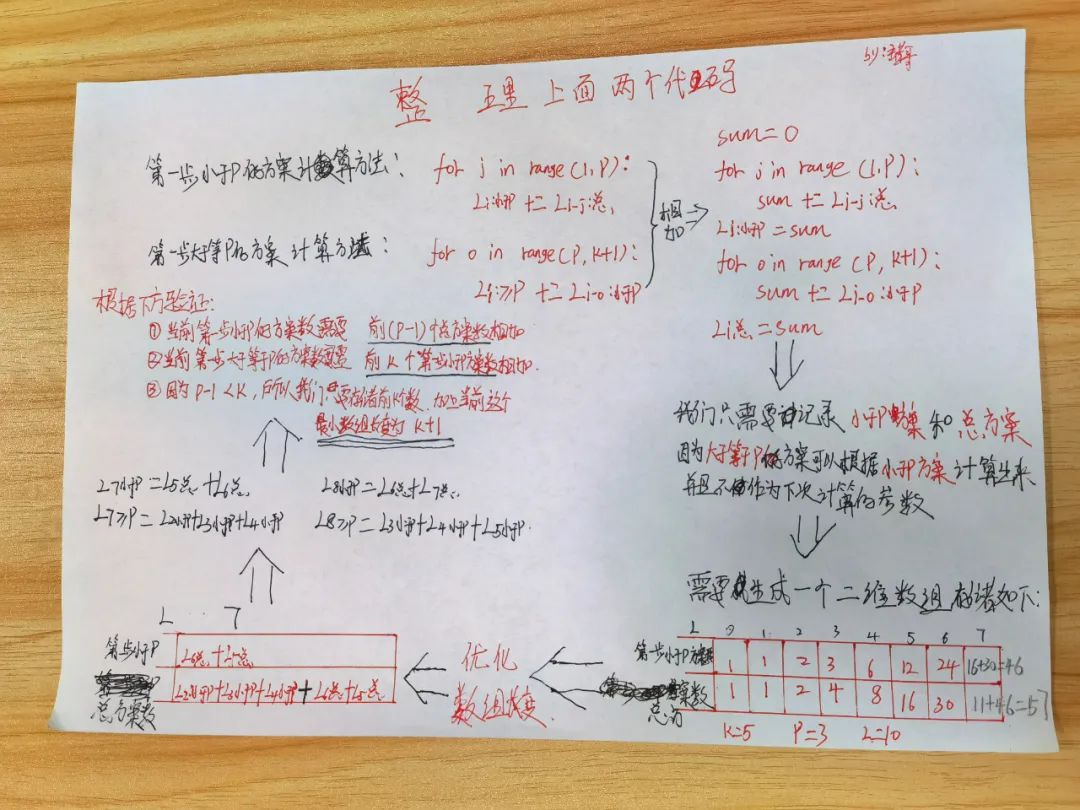 整理上面两个代码
第一步小于P的方案计算方法：
for j in range(1,P):
Li小于P += Li-j总
第一步大于等P的方案计算方法：
for o in range(P, K+1):
Li≥P += Li-o小于P
相加
sum=0
for j in range (1,P):
sum += Li-j总
Li小于P = sum
for o in range (P, K+1):
sum += Li-o小于P
Li总 = sum
根据下方验证：
①当前第一步小于P的方案数需要 前(P-1)个总方案数相加
②当前第一步大于等于P的方案数需要 前K个第一步小于P方案数相加.
③因为P-1<K,所以我们只要存储前K个数,加上当前这个
最小数组长度为K+1
L7小于P=L5总+L6总
L7≥P=L2小于P+L3小于P+L4小于P
L8小于P=L6总+L7总
L8≥P=L3小于P+L4小于P+L5小于P.
我们只需要记录小于P方案和总方案
因为大于等于P的方案可以根据小于P方案计算出来
并且不作为下次计算的参数
需要生成一个二维数组存储如下:
L 0 1 2 3 4 5 6 7
第一步小于P方案数 1 1 2 3 6 12 24 16+30=46
总方案数 1 1 2 4 8 16 30 11+46=57
K=5 P=3 L=10
优化
数组长度
L ... 7
第一步小于P L6总+L5总
总方案数 L2小于P+L3小于P+L4小于P+L6总+L5总